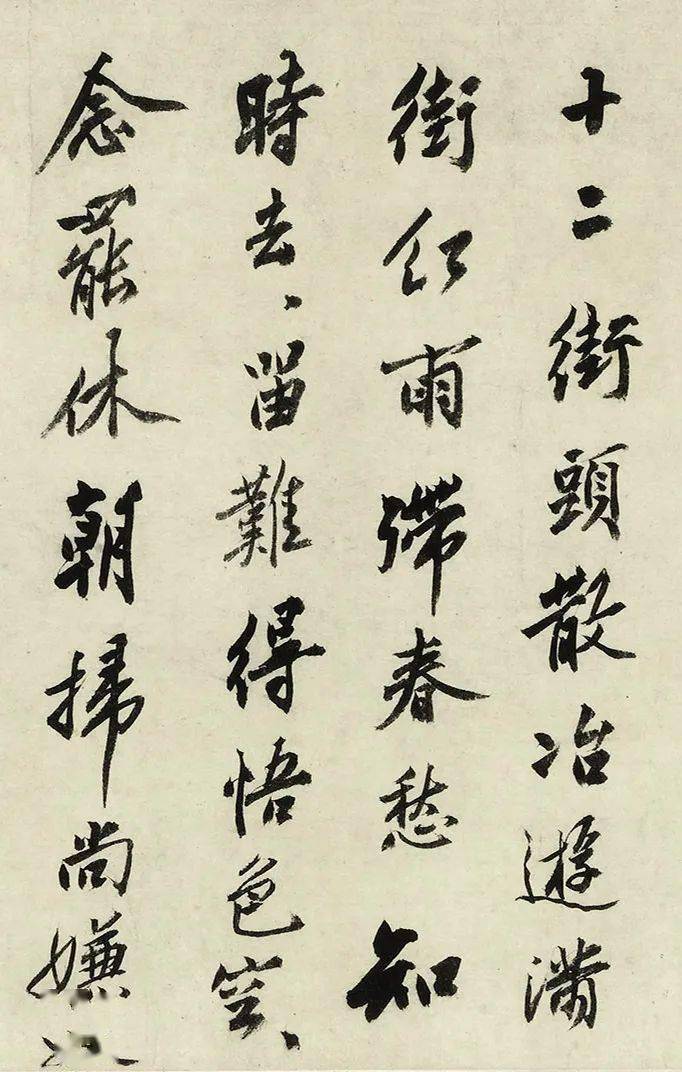 十二街頭散冶遊滿
街紅雨殢春愁知
時去、留難得悟色空、
念罷休朝掃尚嫌